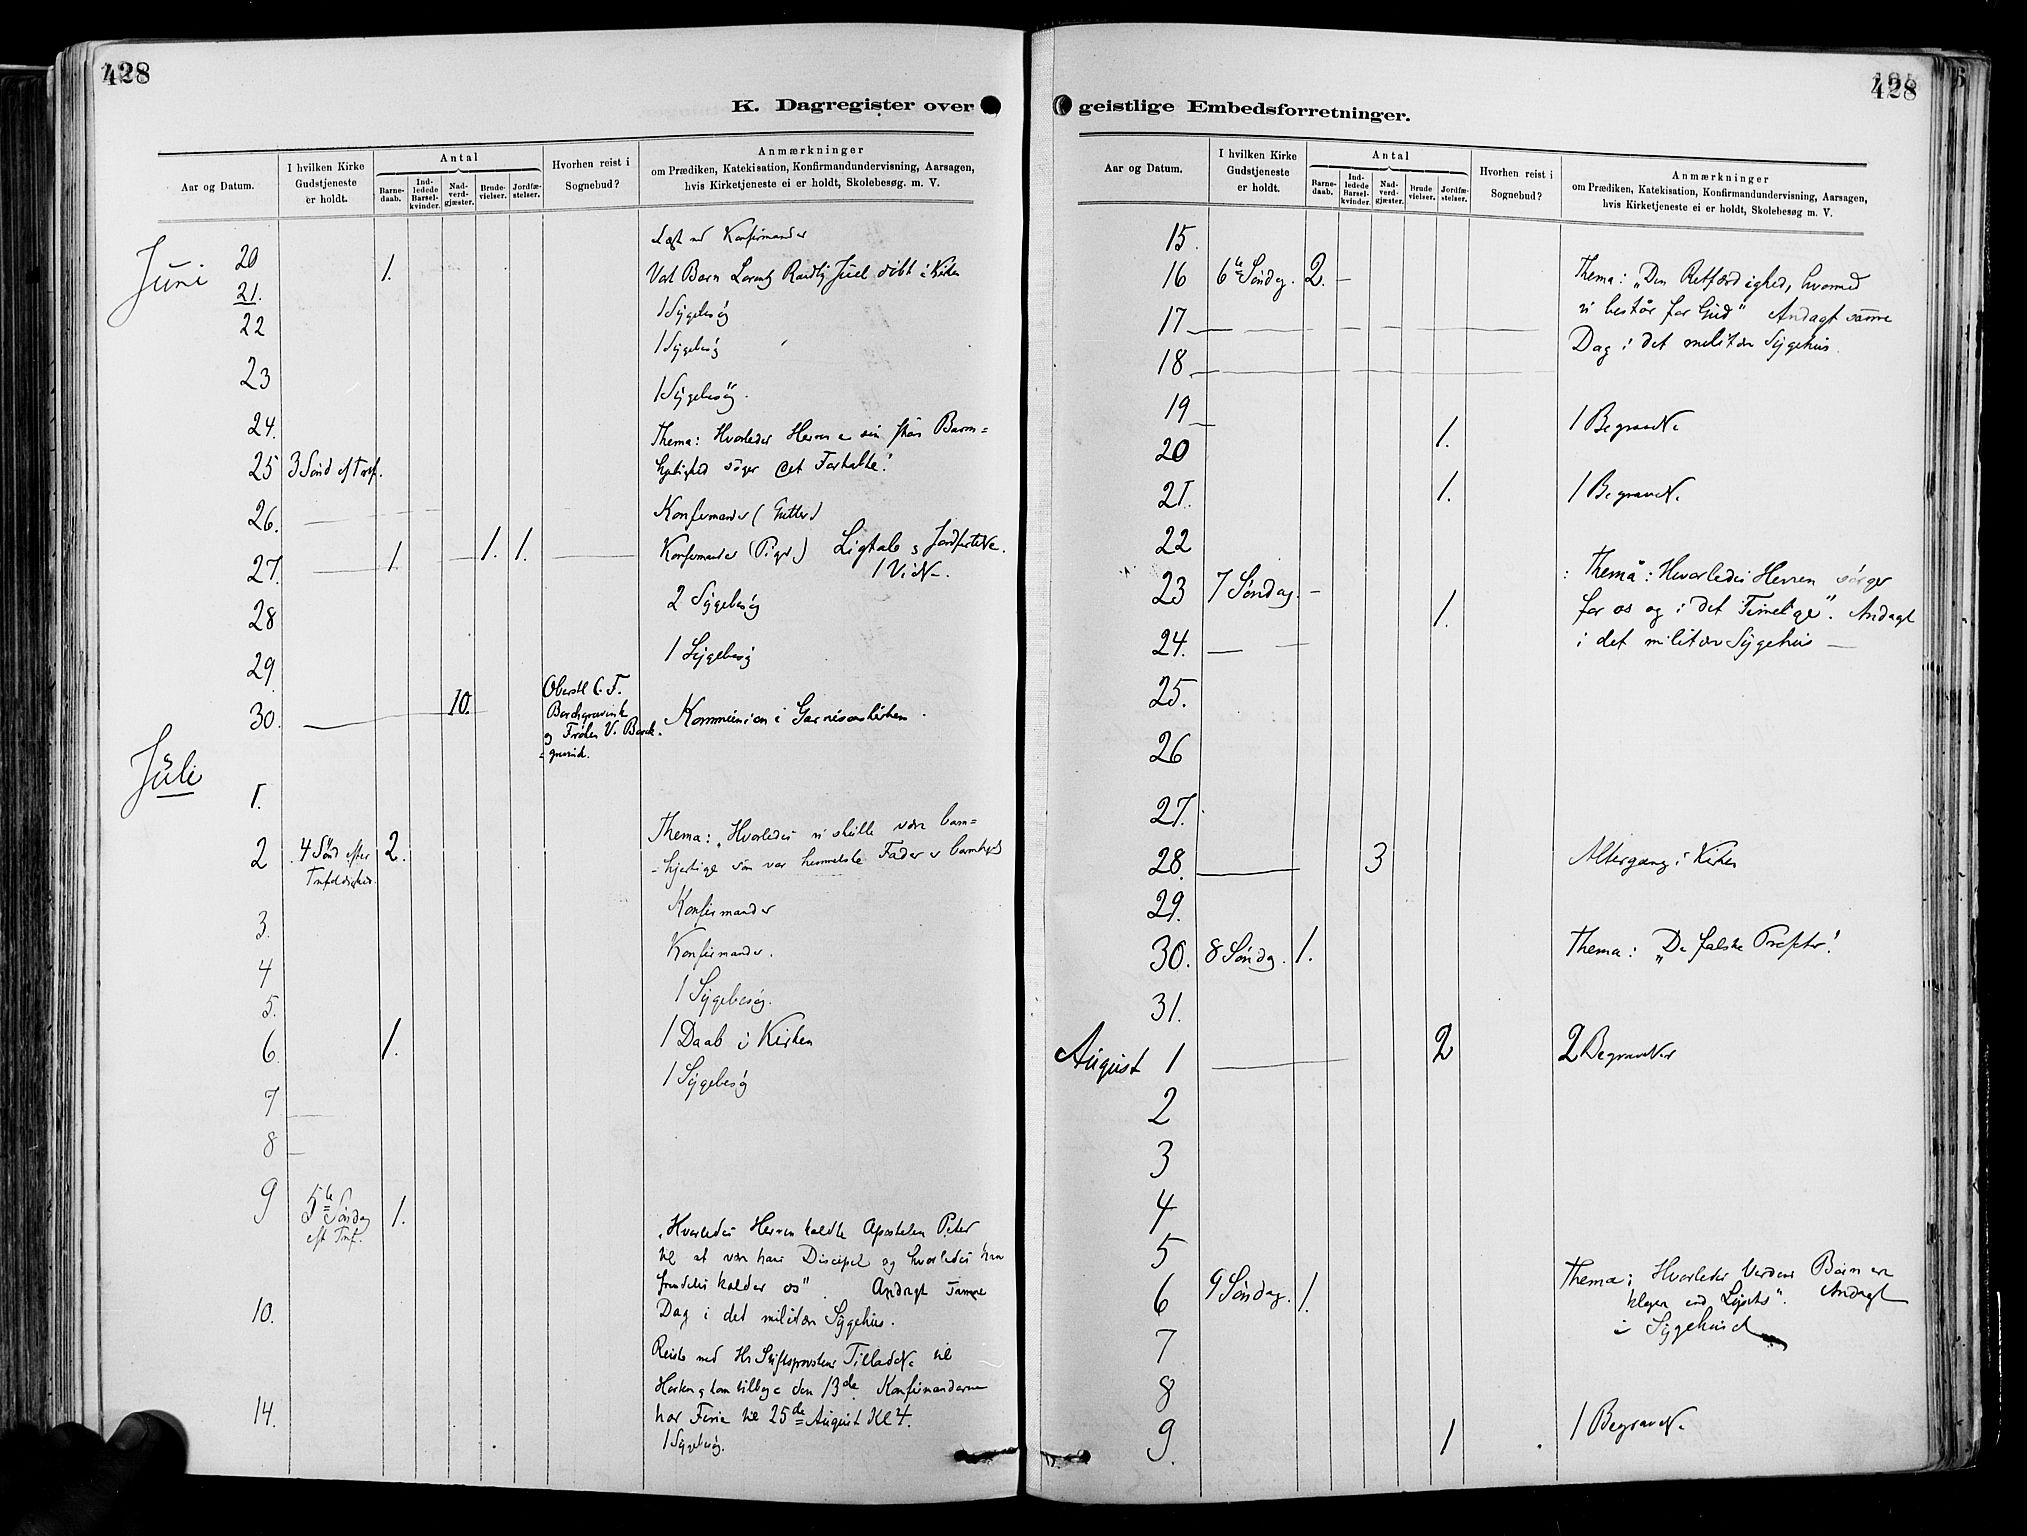 428
K. Dagregister over
Aar og Datum.
I hvilken Kirke
Gudstjeneste
er holdt.
Antal
Barne-
daab.
Ind-
ledede
Barsel-
kvinder.
Nad-
verd-
gjæster.
Brude-
vielser.
Jordfæ-
stelser.
Hvorhen reist i
Sognebud?
Anmærkninger
om Prædiken, Katekisation, Konfirmandundervisning, Aarsagen,
hvis Kirketjeneste ei er holdt, Skolebesøg. m. V.
Konfirmander
Juni 20 1. Barn Juel døbt i Kirken
21. 1 Sygebesøg
22 1 Sygebesøg
23 1 Sygebesøg.
24. Thema: Hvorledes Herren sin Barm=
25 3 Sønd eft Tref. hjertighed søger det Fortabte!
26. Konfirmander (Gutter)
27. 1. 1. 1. Konfirmander (Piger) Ligtale
28 2 Sygebesøg
29 1 Sygebesøg
30. 10. Oberstl C. F.
Kommunion i Garnisonskirken.
og Frøken V.
Juli
1.
Thema: "Hvorledes vi skulle være barm=
2 4 Sønd efter 2. =hjertige som vor himmelske Fader er
Trefoldighed.
Konfirmander
3. Konfirmander.
4 1 Sygebesøg.
5.
6. 1. 1 Daab i Kirken
1 Sygebesøg
7
8
9 5te Søndag 1.
eft Tref.
"Hvorledes Herren kaldte Apostelen Peter
til at være hans Discipel og hvorledes han
fremdeles kalder os". Andagt samme
10. Dag i det militære Sygehus.
Reiste med Hr Stiftsprovstens til
den 13de. Konfirmanderne
14. har Ferie til 25de August Kl 4.
1 Sygebesøg.
428
geistlige Embedsforretninger.
Aar og Datum.
I hvilken Kirke
Gudstjeneste
er holdt.
Antal
Barne-
daab.
Ind-
ledede
Barsel-
kvinder.
Nad-
verd-
gjæster.
Brude
vielser.
Jordfæ-
stelser.
Hvorhen reist i
Sognebud?
Anmærkninger
om Prædiken, Katekisation, Konfirmandundervisning, Aarsagen,
hvis Kirketjeneste ei er holdt, Skolebesøg m. V.
15.
16 6te Søndag. 2. Thema: "Den Retfærdighed, hvormed
17 vi består for Gud" Andagt samme
18 Dag i det militære Sygehus.
19 1. 1
20
21. 1. 1
22
23 7 Søndag. Thema: Hvorledes Herren sørger
1. for os og i det Timelige". Andagt
24. i det militære Sygehus
25.
26
27.
28. 3 Altergang i Kirken
29.
30. 8 Søndag. 1. Thema: "De falske Profeter!
31.
August 1 2 2
2
3
4
5
6 9 Søndag. 1. Thema: Hvorledes Verdens Børn ere
klogere end Lysets". Andagt
i Sygehuset
7
8
9. 1 1